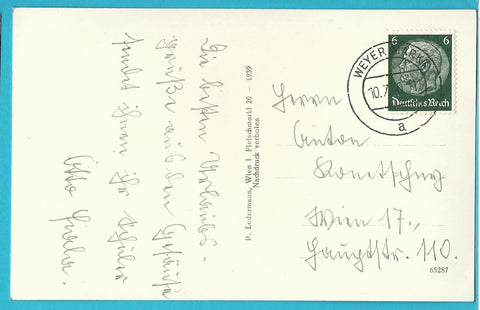 Die besten Urlaubs-
grüße aus dem Gesäuse
sendet Ihnen Ihr Schüler
Otto
P. Ledermann, Wien I. Fleischmarkt 20 — 1939
Nachdruck verboten
WEYER
10.7
a
6 6
Deutsches Reich
Herrn
Anton
Wien 17.,
Hauptstr. 110.
65287